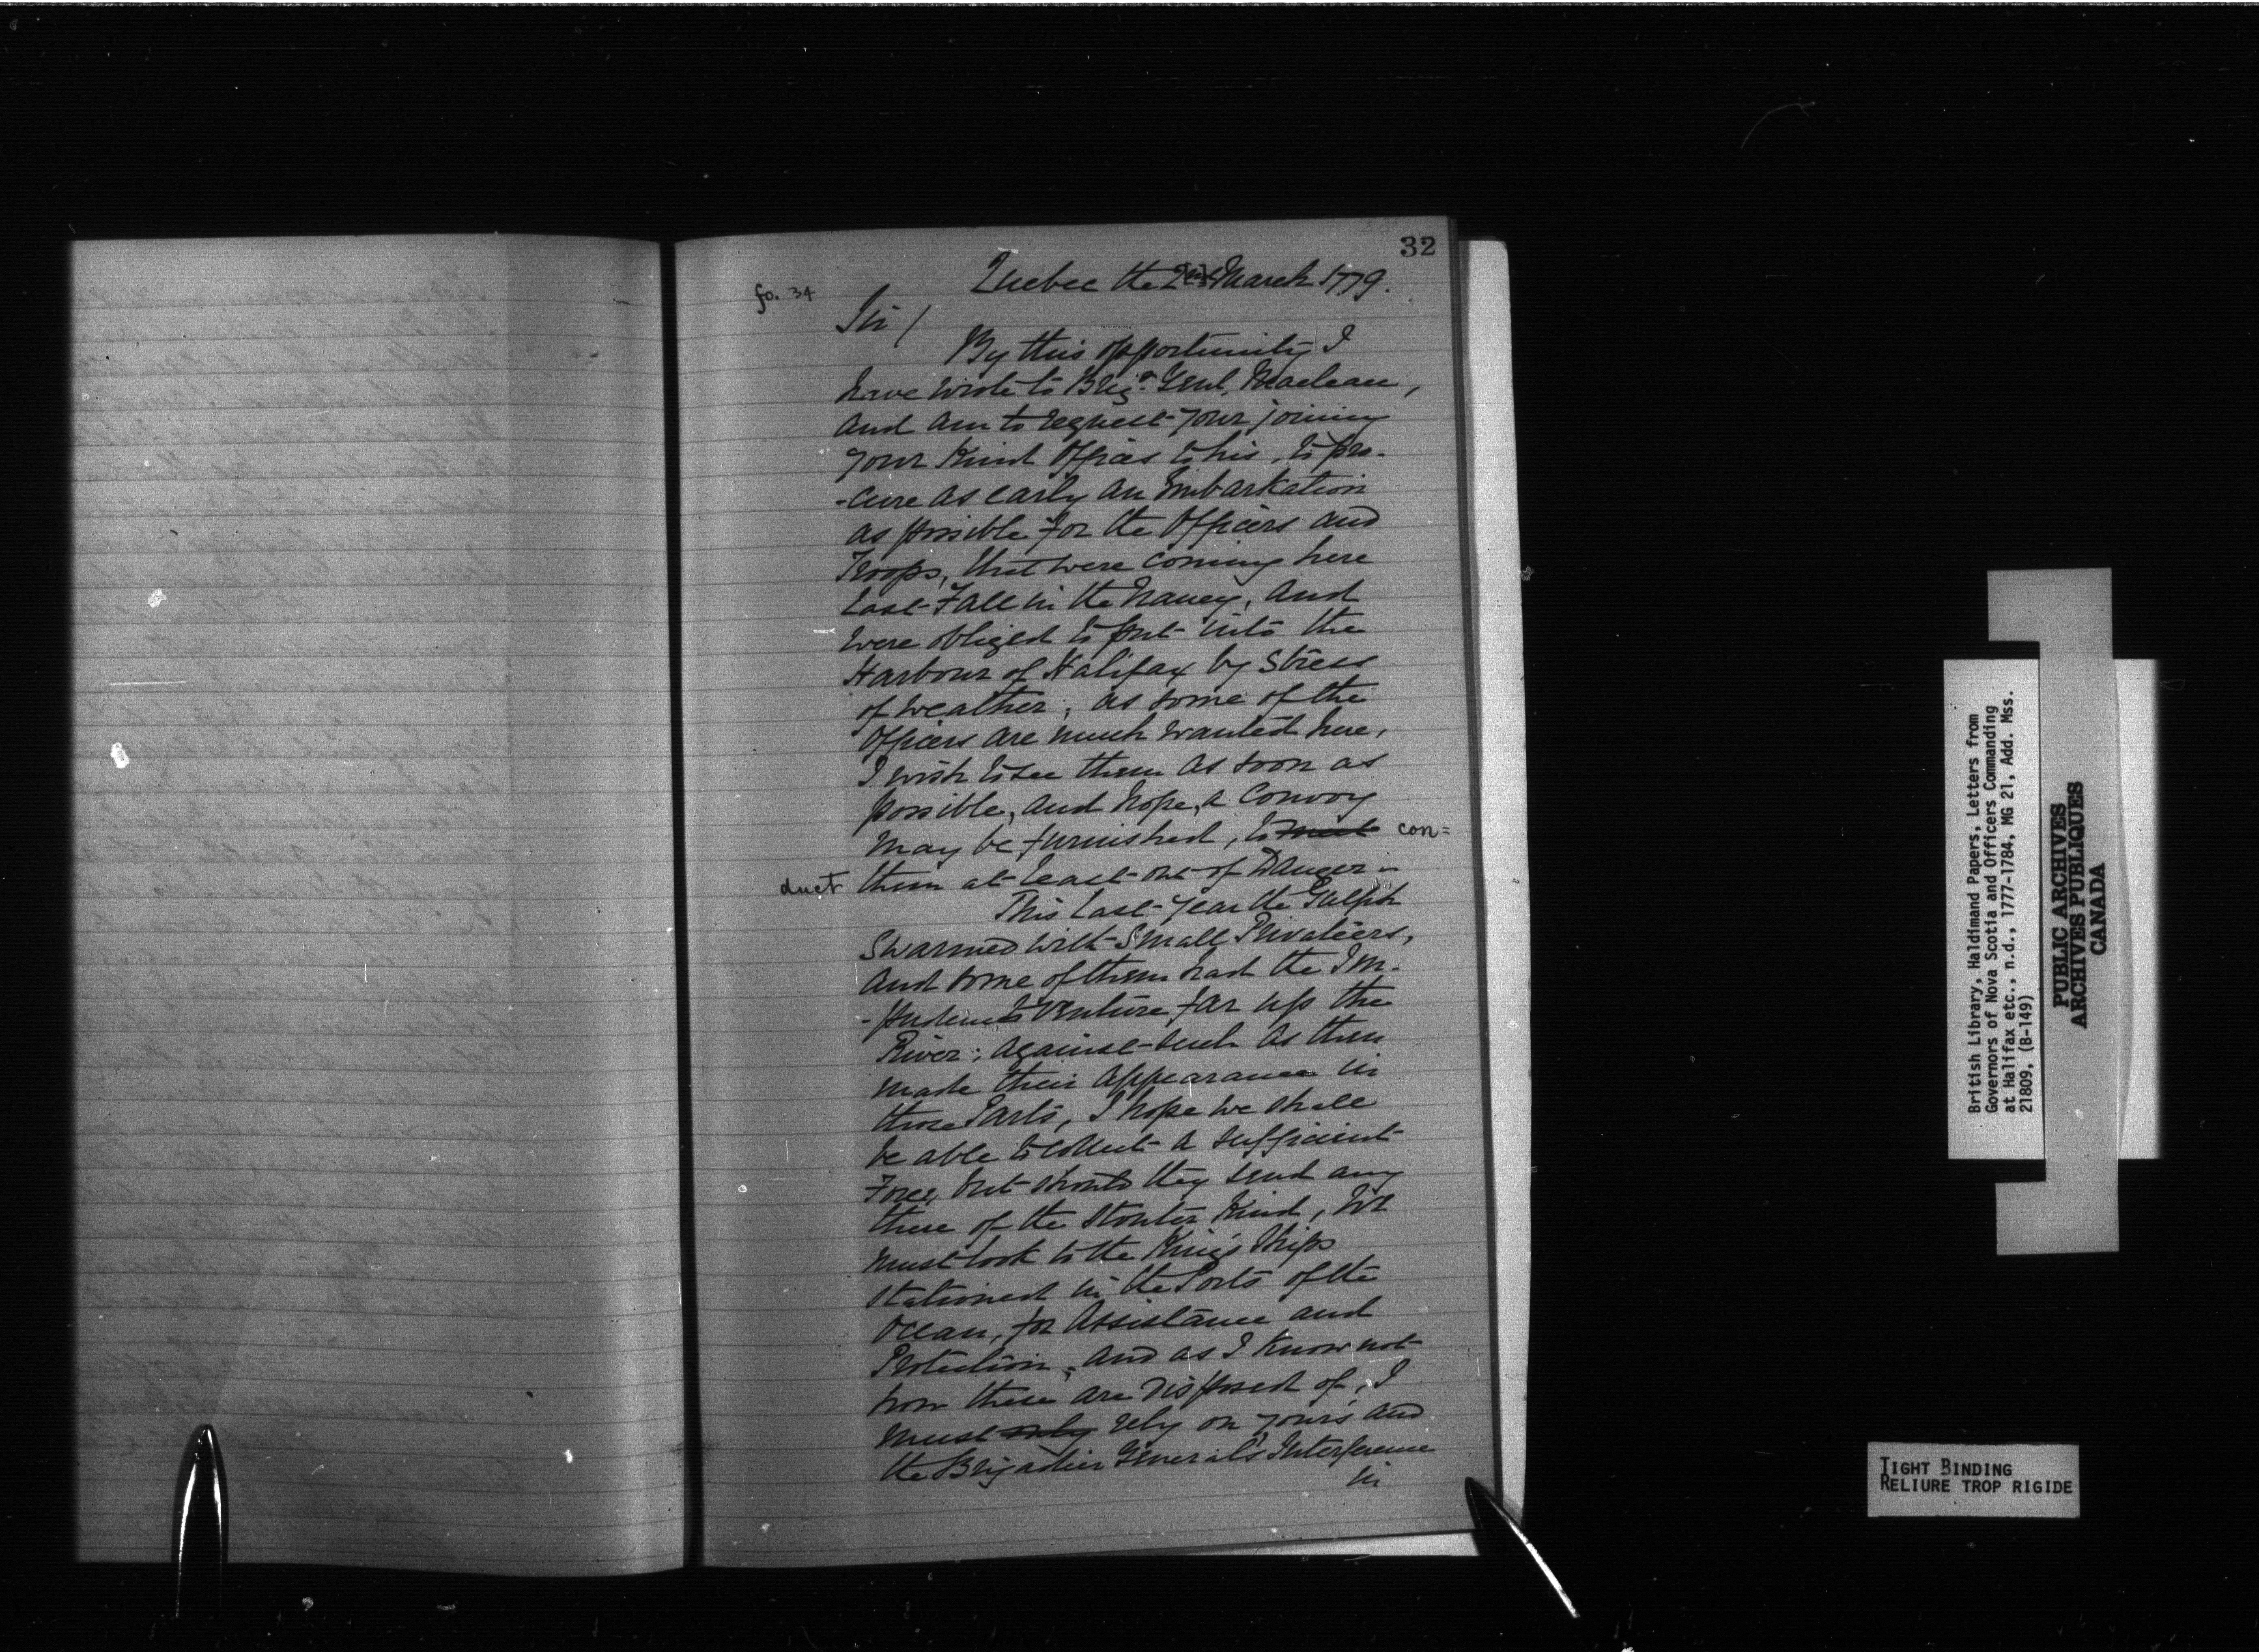 32
fo. 34
Quebec the 2nd March 1779.
Sir /
By this opportunity I
have wrote to Brigr. Genl. Maclean,
and am to request your joining
your Kind Offices to his, to pro-
-cure as early an Embarkation
as possible for the Officers and
Troops, that were coming here
last Fall in the Nancy, and
were obliged to put into the
Harbour of Halifax by Stress
of weather; as some of the
Officers are much wanted here,
I wish to see them as soon as
possible, and hope, a Convoy
may be furnished, to meet con=
duct them at least out of Danger.-
This last year the Gulph
Swarmed with Small Privateers,
and some of them had the Im-
-pudence to venture far up the
River; against such as then
made their appearance in
those Parts, I hope we shall
be able to collect a sufficient
Force, but should they send any
there of the Stouter Kind, we
must look to the King's Ships
stationed in the Ports of the
Ocean, for Assistance and
Protection; and as I know not
how these are disposed of, I
must only rely on your's and
the Brigadier General's Interference
in
British Library, Haldimand Papers, Letters from
Governors of Nova Scotia and Officers Commanding
at Halifax etc., n.d., 1777-1784, MG 21, Add. Mss.
21809, (B-149)
PUBLIC ARCHIVES
ARCHIVES PUBLIQUES
CANADA
TIGHT BINDING
RELIURE TROP RIGIDE